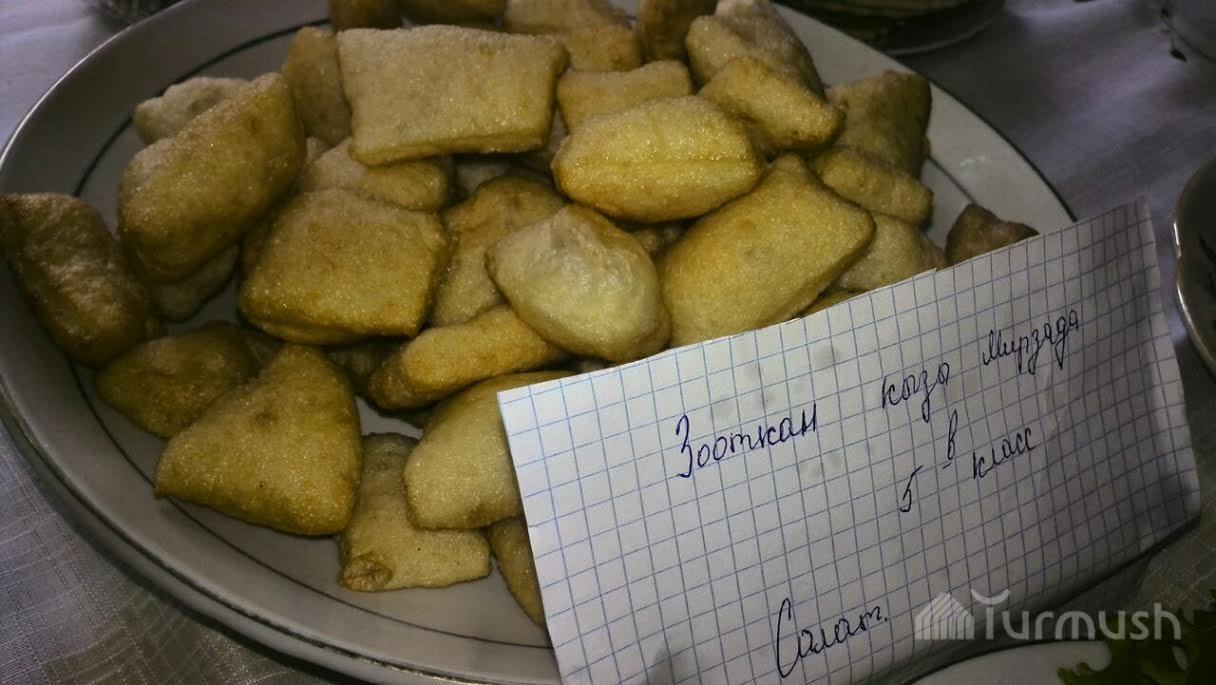 Зооткан кызы Мирзада
5-в класс
Салат.
Turmush